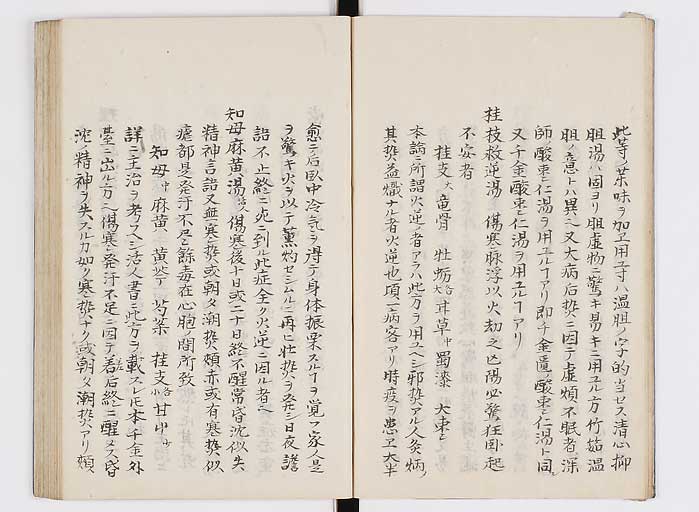 此等ノ薬味ヲ加ヱ用ユ寸ハ温胆ノ字的当セス清心抑
胆湯ハ固ヨリ胆虚物ニ驚キ易キニ用ユル方竹茹温
胆ノ意トハ異ニ又大病后煩ニ因テ虚煩不眠者深
師酸棗仁湯ヲ用ユルヿアリ即千金匱ノ酸棗仁湯ト同
又千金酸棗仁湯ヲ用ユルヿアリ
桂枝救逆湯 傷寒脉浮以火劫之亡陽必驚狂卧起
不安者
桂支大 竜骨 牡蛎各大 甘草中 蜀漆 大棗
本論ニ所謂火逆ノ者アラハ此方ヲ用ユヘシ邪熱アル人灸焫
其熱益熾ナル者火逆也項一病客アリ時疫ヲ患ヱ大半
愈テ后臥中冷気ヲ得テ身体振栗スルヿヲ覚フ家人是
ヲ驚キ火ヲ以テ薫灼セシムルニ再ヒ壮熱ヲ発シ日夜譫
語不止終ニ死ニ到ル此症全ク火逆ニ因ル者
知母麻黄湯 傷寒後十日或二十日終不醒常昏沈似失
精神言語又無寒熱或朝夕潮熱頬赤或有寒熱似
瘧都是発汗不尽餘毒在心胞ノ間所致
知母中 麻黄 黄芩 芍薬 桂支各小 甘草
詳ニ主治ヲ考スヘシ活人書ニ此方ヲ載スレ𪜈本千金外
臺ニ出ル方ヘ傷寒発汗不足ニ因テ着后終ニ醒メス昏
沈ノ精神ヲ失スルカ如ク寒熱ナク或朝夕潮熱アリ頬